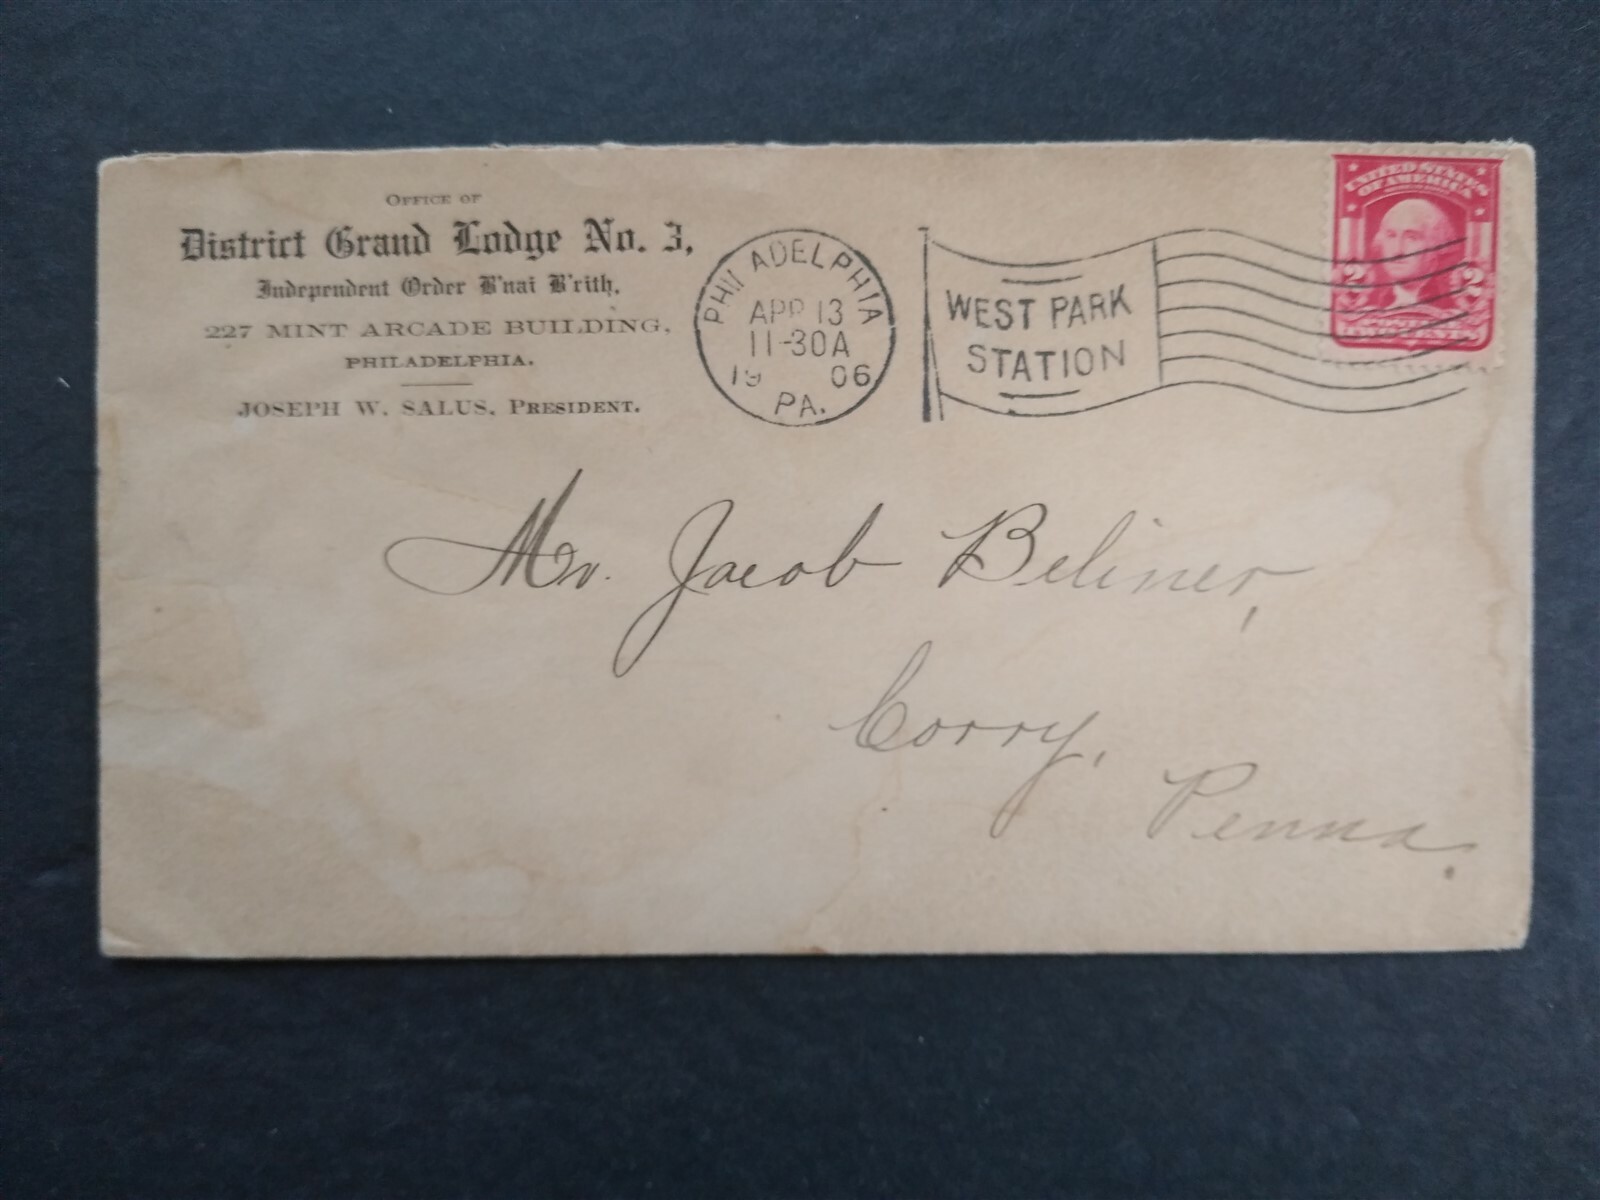 OFFICE OF
District Grand Lodge No. 3,
Independent Order B'nai B'rith,
227 MINT ARCADE BUILDING,
PHILADELPHIA.
JOSEPH W. SALUS, PRESIDENT.
PHILADELPHIA
APR 13
11-30A
19 06
PA.
WEST PARK
STATION
UNITED STATES
OF AMERICA
2 2
TWO CENTS
Mr. Jacob Beliner,
Corry,
Penna.